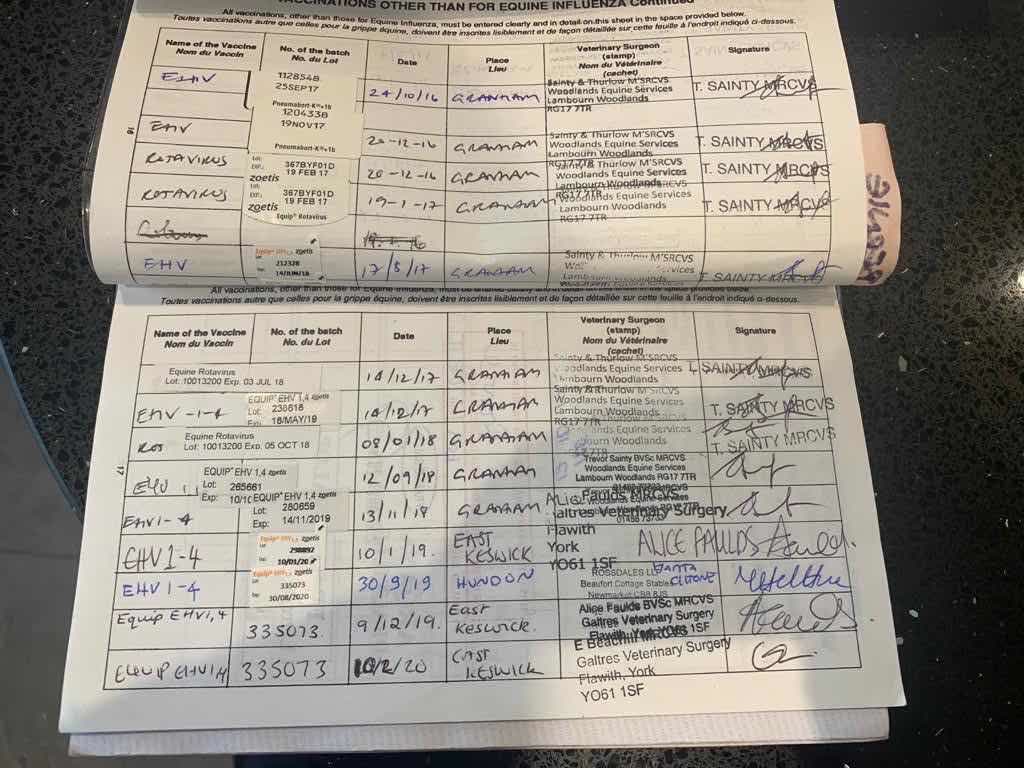 VACCINATIONS OTHER THAN FOR EQUINE INFLUENZA Continued
All vaccinations, other than those for Equine Influenza, must be entered clearly and in detail on this sheet in the space provided below.
Toutes vaccinations autre que celles pour la grippe équine, doivent être inscrites lisiblement et de façon détaillée sur cette feuille à l'endroit indiqué ci-dessous.
Name of the Vaccine No. of the batch Date Place Veterinary Surgeon Signature
Nom du Vaccin No. du Lot Lieu (stamp)
Nom du Vétérinaire
(cachet)
EHV 1128548 24/10/16 GRANHAM Sainty & Thurlow M'SRCVS T. SAINTY MRCVS
25SEP17 Woodlands Equine Services
Pneumabort-K +1b Lambourn Woodlands
RG17 7TR
EHV 1204338 20-12-16 GRANHAM Sainty & Thurlow M'SRCVS T. SAINTY MRCVS
19NOV17 Woodlands Equine Services
Pneumabort-K +1b Lambourn Woodlands
RG17 7TR
ROTAVIRUS Lot: 367BYF01D 20-12-16 GRANHAM Sainty & Thurlow M'SRCVS T. SAINTY MRCVS
EXP.: 19 FEB 17 Woodlands Equine Services
zoetis Lambourn Woodlands
ROTAVIRUS Lot: 367BYF01D 19-1-17 GRANHAM Woodlands Equine Services T. SAINTY
EXP.: 19 FEB 17 Lambourn Woodlands
zoetis RG17 7TR
Equip® Rotavirus
EHV Equip® EHV1,4 zoetis 17/8/17 GRANHAM Sainty & Thurlow M'SRCVS T SAINTY
212328 Services
14/JUN/18 Lambourn Woodlands
16
All vaccinations, other than those for Equine Influenza, must be entered clearly
Toutes vaccinations autre que celles pour la grippe équine, doivent être inscrites lisiblement et de façon détaillée sur cette feuille à l'endroit indiqué ci-dessous.
Name of the Vaccine No. of the batch Date Place Veterinary Surgeon Signature
Nom du Vaccin No. du Lot Lieu (stamp)
Nom du Vétérinaire
(cachet)
Equine Rotavirus 14/12/17 GRANHAM Sainty & Thurlow M'SRCVS SAINTY MRCVS
Lot: 10013200 Exp. 03 JUL 18 Woodlands Equine Services
Lambourn Woodlands
EHV-1-4 EQUIP® EHV 1,4 zoetis 14/12/17 GRANHAM Sainty & Thurlow M'SRCVS T. SAINTY MRCVS
Lot: 236618 Woodlands Equine Services
18/MAY/19 Lambourn Woodlands
RG17 7TR
Rot Equine Rotavirus 08/01/18 GRANHAM Woodlands Equine Services T. SAINTY MRCVS
Lot: 10013200 Exp. 05 OCT 18 Lambourn Woodlands
17
EQUIP® EHV 1,4 zoetis 12/09/18 GRANHAM Trevor Sainty BVSc MRCVS
Lot: 265661 Woodlands Equine Services
Exp: Lambourn Woodlands RG17 7TR
EHV1-4 EQUIP® EHV 1,4 zoetis 13/11/18 GRANHAM
Lot: 280659
Exp: 14/11/2019
EHV 1-4 Equip® EHV1,4 zoetis 10/1/19. EAST KESWICK Alice Faulds MRCVS ALICE FAULDS
298892 Galtres Veterinary Surgery
10/01/20 Flawith
York
YO61 1SF
EHV 1-4 Equip® EHV1,4 zoetis 30/9/19 HUNDON ROSSDALES LLP
335073 Beaufort Cottage Stables
30/08/2020 Newmarket CB8 8JS
Equip EHV1,4 335073 9/12/19. East Keswick. Alice Faulds BVSc MRCVS
Galtres Veterinary Surgery
Flawith, York YO61 1SF
EQUIP EHV1,4 335073 10/2/20 EAST KESWICK E Beachill MRCVS
Galtres Veterinary Surgery
Flawith, York
YO61 1SF